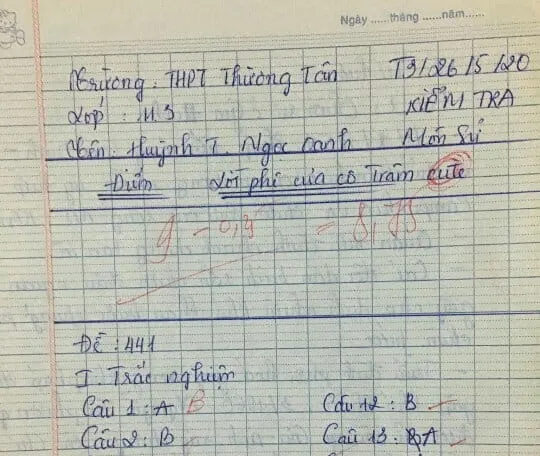 Ngày ......tháng ......năm......
Trường : THPT Thường Tân T3/26/5/20
Lớp : 11.3 KIỂM TRA
Tên : Huỳnh T. Ngọc Oanh Môn Sử
Điểm Lời phê của cô Trâm cute
9 - 0,4 = 8,75
Đề : 441
I. Trắc nghiệm
Câu 1 : A B Câu 12 : B
Câu 2 : B Câu 13 : A